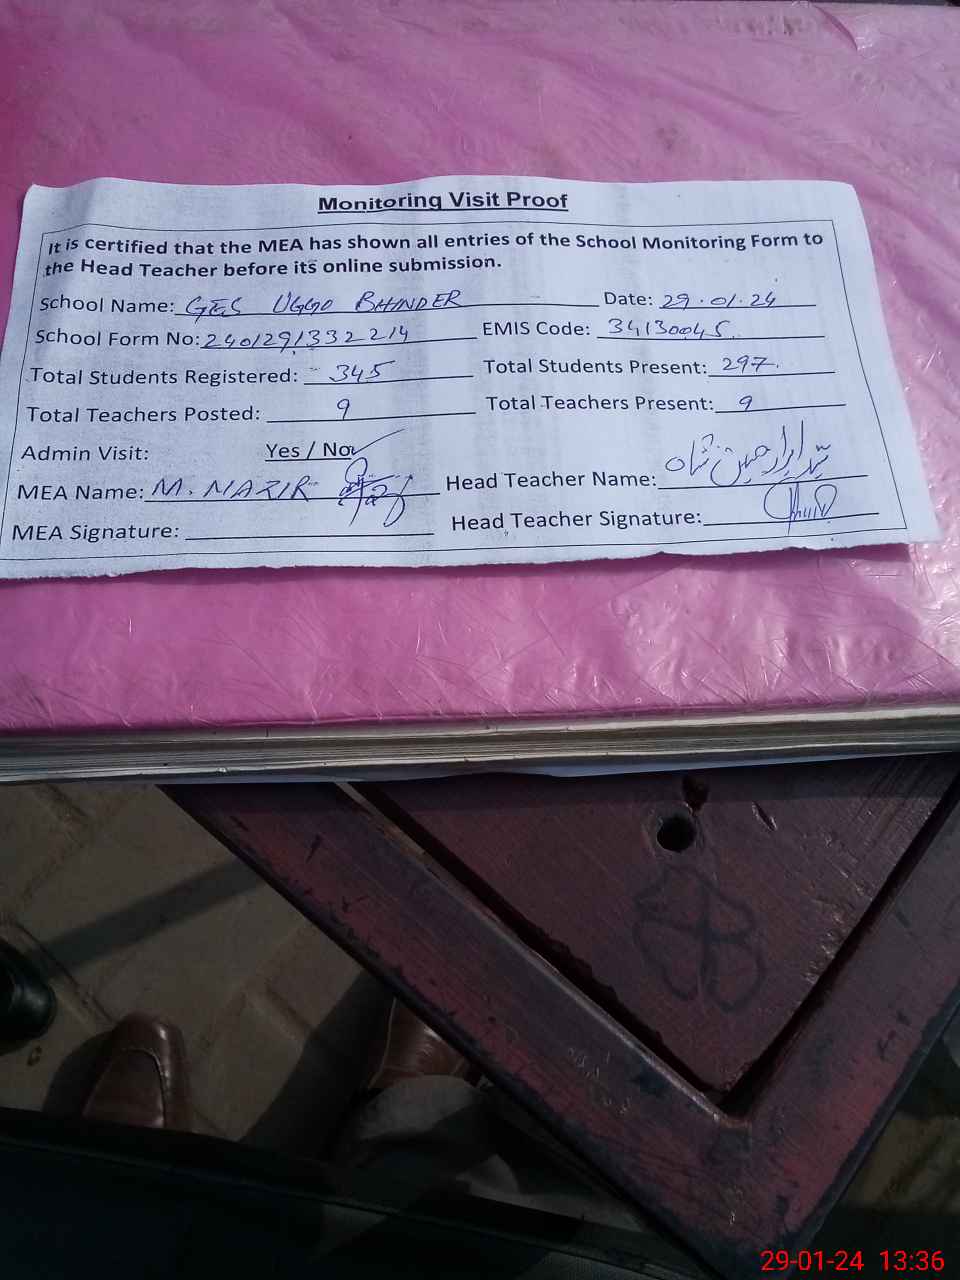 Monitoring Visit Proof
It is certified that the MEA has shown all entries of the School Monitoring Form to
the Head Teacher before its online submission.
School Name: GES UGGO BHINDER Date: 29.01.24
School Form No: 2401291332214 EMIS Code: 34130045
Total Students Registered: 345 Total Students Present: 297
Total Teachers Posted: 9 Total Teachers Present: 9
Admin Visit: Yes / No
MEA Name: M. NAZIR Head Teacher Name: سید ابرار حسین شاہ
MEA Signature: Head Teacher Signature:
29-01-24 13:36